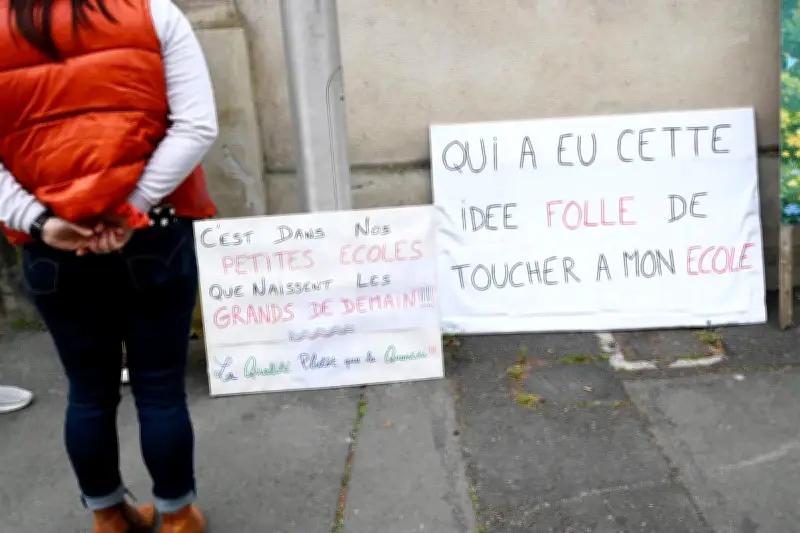 C'EST DANS NOS
PETITES ECOLES
QUE NAISSENT LES
GRANDS DE DEMAIN!!!!
La Qualité Plutôt que la Quantité !!
QUI A EU CETTE
IDEE FOLLE DE
TOUCHER A MON ECOLE